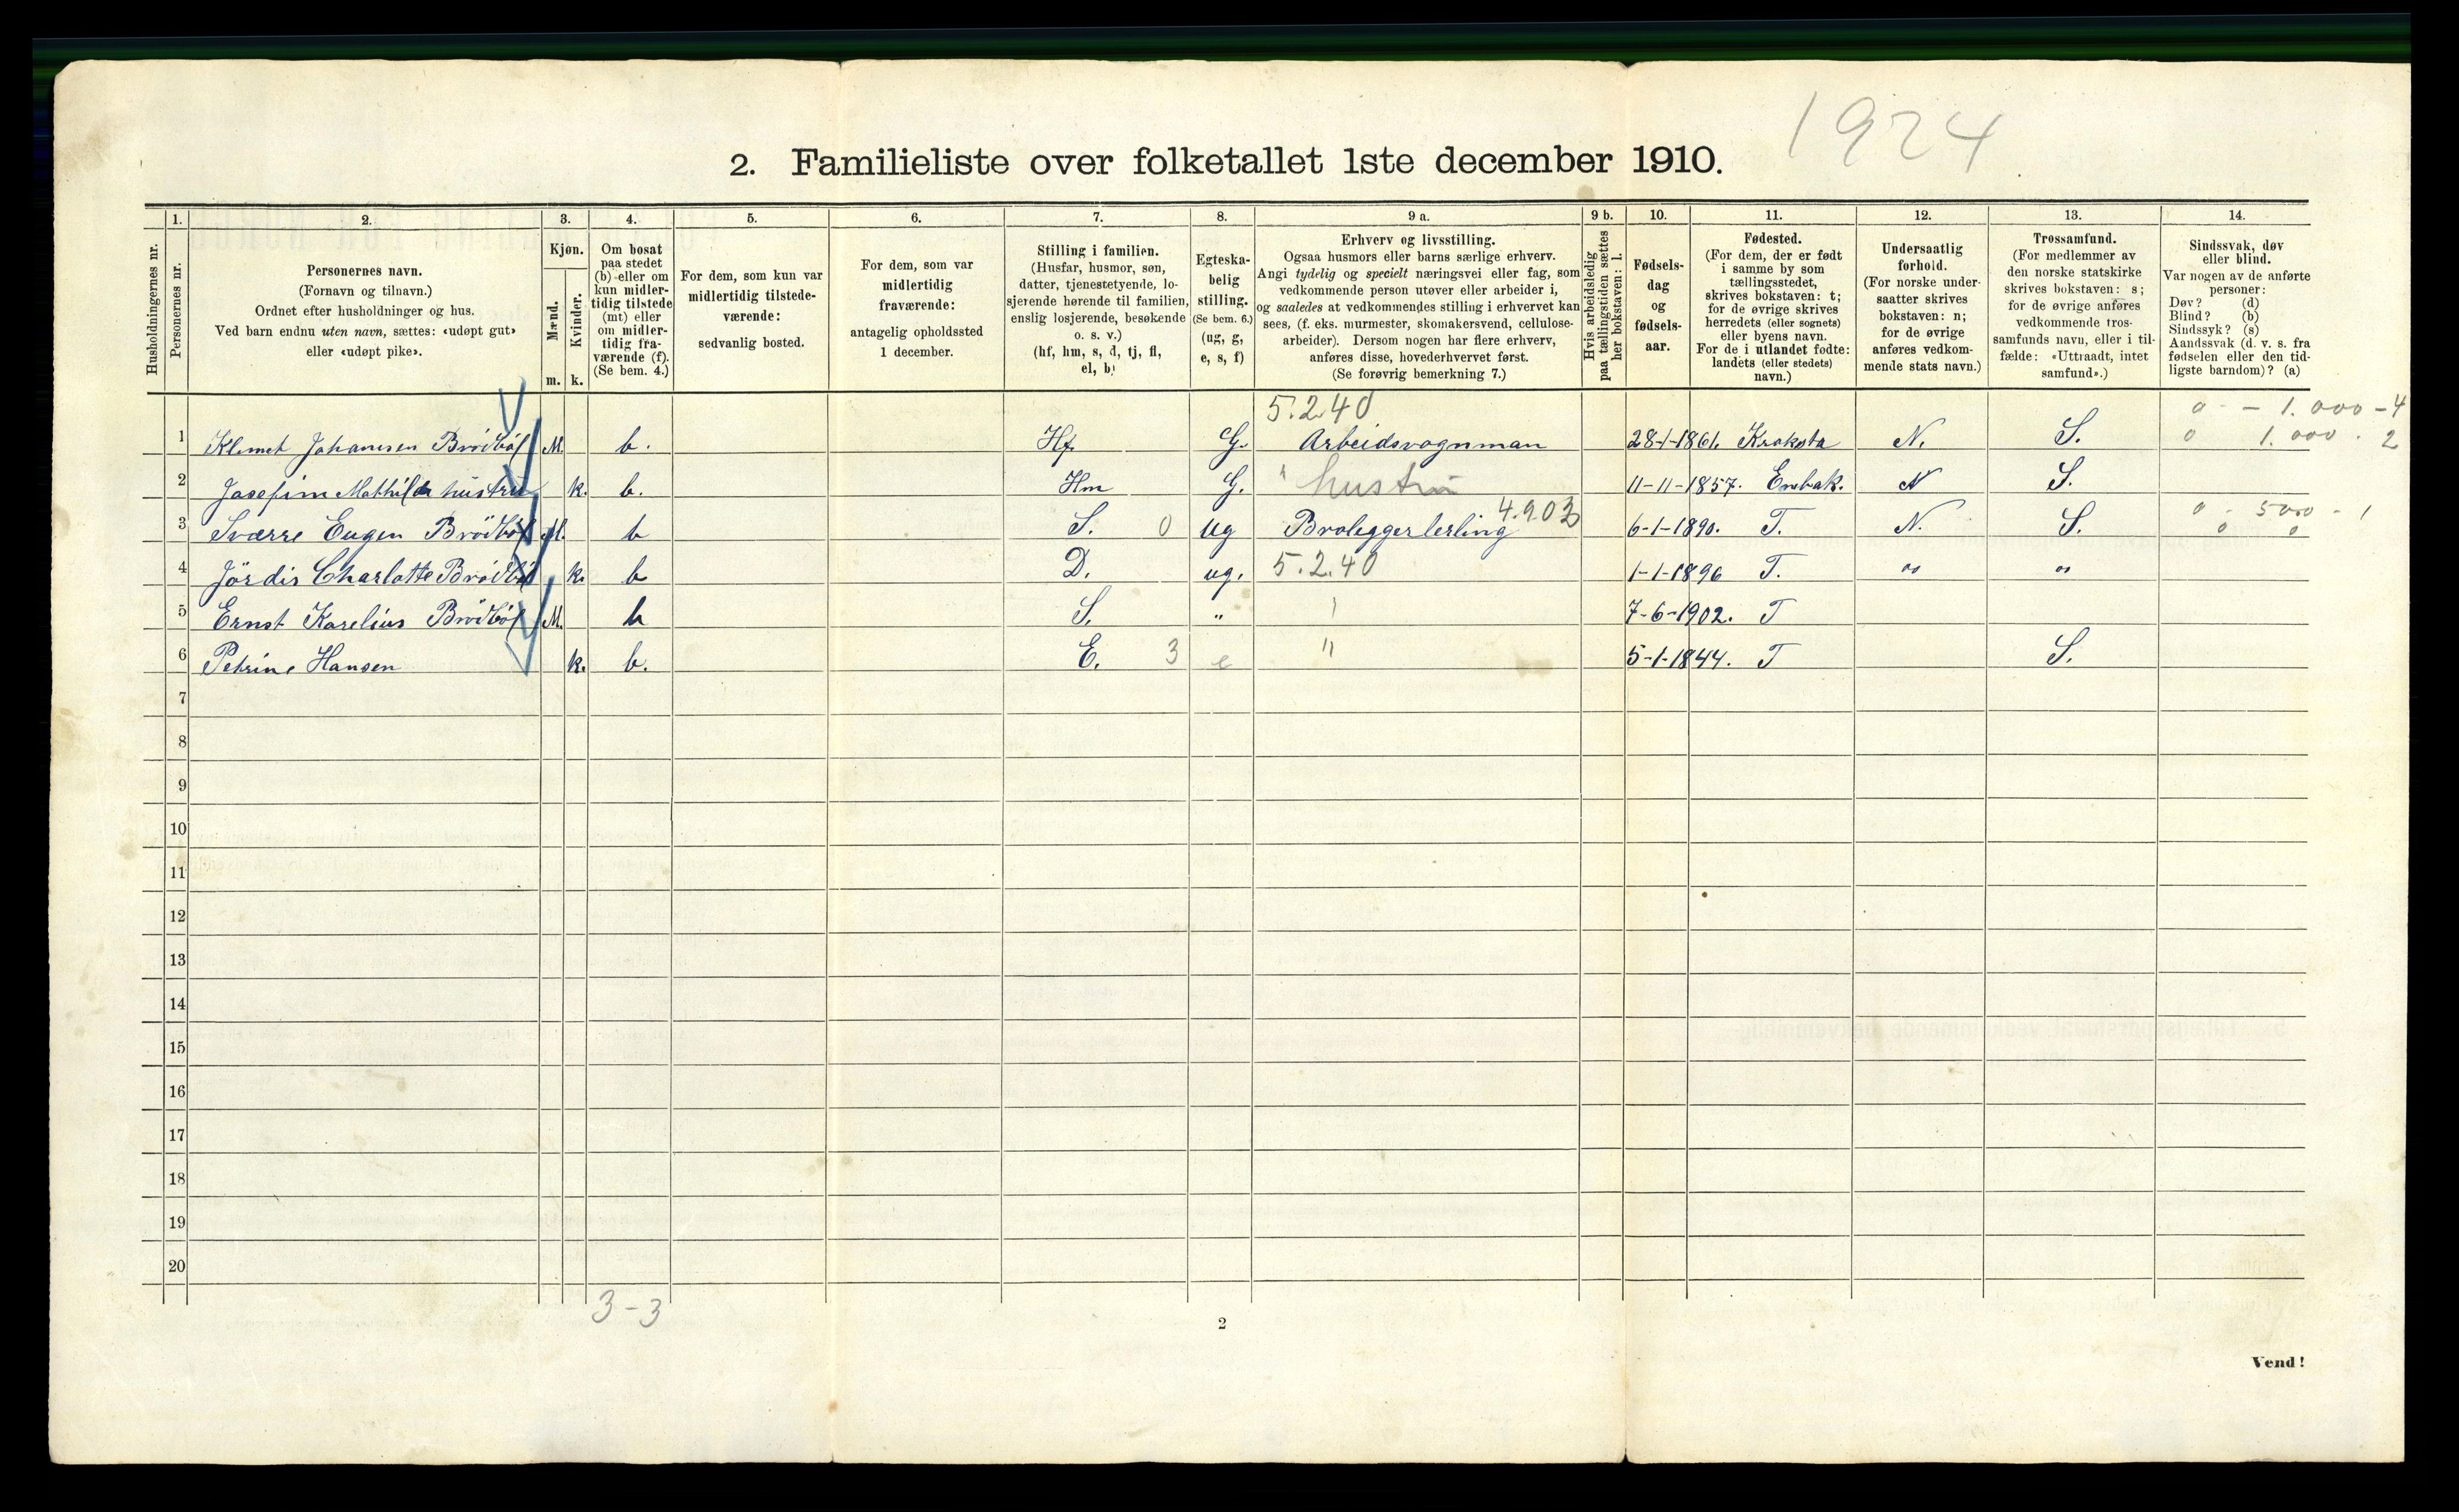 1924
2. Familieliste over folketallet 1ste december 1910.
Husholdningernes nr.
1. Personernes nr.
2.
Personernes navn.
(Fornavn og tilnavn.)
Ordnet efter husholdninger og hus.
Ved barn endnu uten navn, sættes: «udøpt gut»
eller «udøpt pike».
3.
Kjøn.
Mænd. m.
Kvinder. k.
4.
Om bosat
paa stedet
(b) eller om
kun midler-
tidig tilstede
(mt) eller
om midler-
tidig fra-
værende (f).
(Se bem. 4.)
5.
For dem, som kun var
midlertidig tilstede-
værende:
sedvanlig bosted.
6.
For dem, som var
midlertidig
fraværende:
antagelig opholdssted
1 december.
7.
Stilling i familien.
(Husfar, husmor, søn,
datter, tjenestetyende, lo-
sjerende hørende til familien,
enslig losjerende, besøkende
o. s. v.)
(hf, hm, s, d, tj, fl,
el, b)
8.
Egteska-
belig
stilling.
(Se bem. 6.)
(ug, g,
e, s, f)
9 a.
Erhverv og livsstilling.
Ogsaa husmors eller barns særlige erhverv.
Angi tydelig og specielt næringsvei eller fag, som
vedkommende person utøver eller arbeider i,
og saaledes at vedkommendes stilling i erhvervet kan
sees, (f. eks. murmester, skomakersvend, cellulose-
arbeider). Dersom nogen har flere erhverv,
anføres disse, hovederhvervet først.
(Se forøvrig bemerkning 7.)
9 b.
Hvis arbeidsledig
paa tællingstiden sættes
her bokstaven: l.
10.
Fødsels-
dag
og
fødsels-
aar.
11.
Fødested.
(For dem, der er født
i samme by som
tællingsstedet,
skrives bokstaven: t;
for de øvrige skrives
herredets (eller sognets)
eller byens navn.
For de i utlandet fødte:
landets (eller stedets)
navn.)
12.
Undersaatlig
forhold.
(For norske under-
saatter skrives
bokstaven: n;
for de øvrige
anføres vedkom-
mende stats navn.)
13.
Trossamfund.
(For medlemmer av
den norske statskirke
skrives bokstaven: s;
for de øvrige anføres
vedkommende tros-
samfunds navn, eller i til-
fælde: «Uttraadt, intet
samfund».)
14.
Sindssvak, døv
eller blind.
Var nogen av de anførte
personer:
Døv? (d)
Blind? (b)
Sindssyk? (s)
Aandssvak (d. v. s. fra
fødselen eller den tid-
ligste barndom)? (a)
5.2.40 0 - - 1.000 - 4
1 Klemet Johannesen Brödböl M. b. Hf. G. Arbeidsvognman 28-1-1861. Kraksta N. S. 0 1.000 . 2
2 Josefine Mathilde hustru k. b. Hm G. " hustru 11-11-1857. Enebak. N S.
4.903 0 - 500 - 1
3 Sverre Eugen Brödböl M. b S. 0 ug Broleggerlerling 6-1-1890. T. N. S. 0 0
4 Jördis Charlotte Brödböl k. b D. ug. 5.2.40 1-1-1896 T. " "
5 Ernst Karelius Brödböl M. b S. " 7-6-1902. T
6 Petrine Hansen k. b. E. 3 e " 5-1-1844. T S.
7
8
9
10
11
12
13
14
15
16
17
18
19
20
3-3
2
Vend!